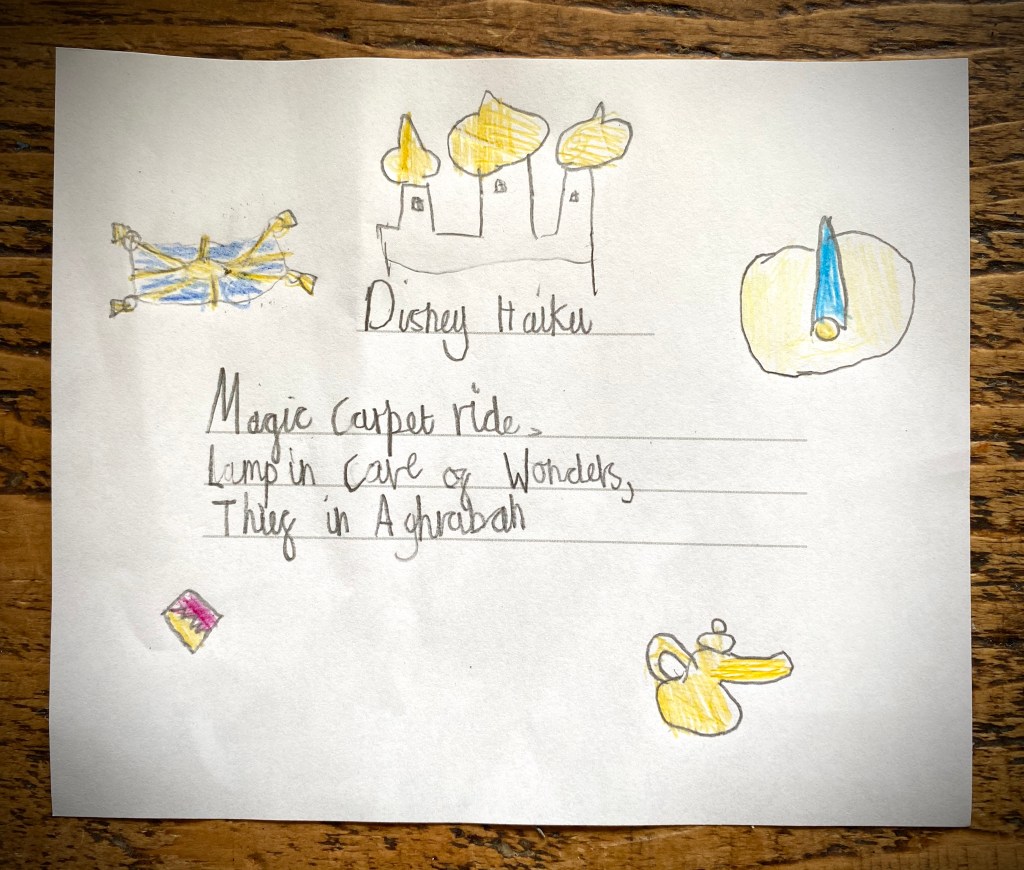 Disney Haiku
Magic Carpet ride,
Lamp in Cave of Wonders,
Thief in Aghrabah